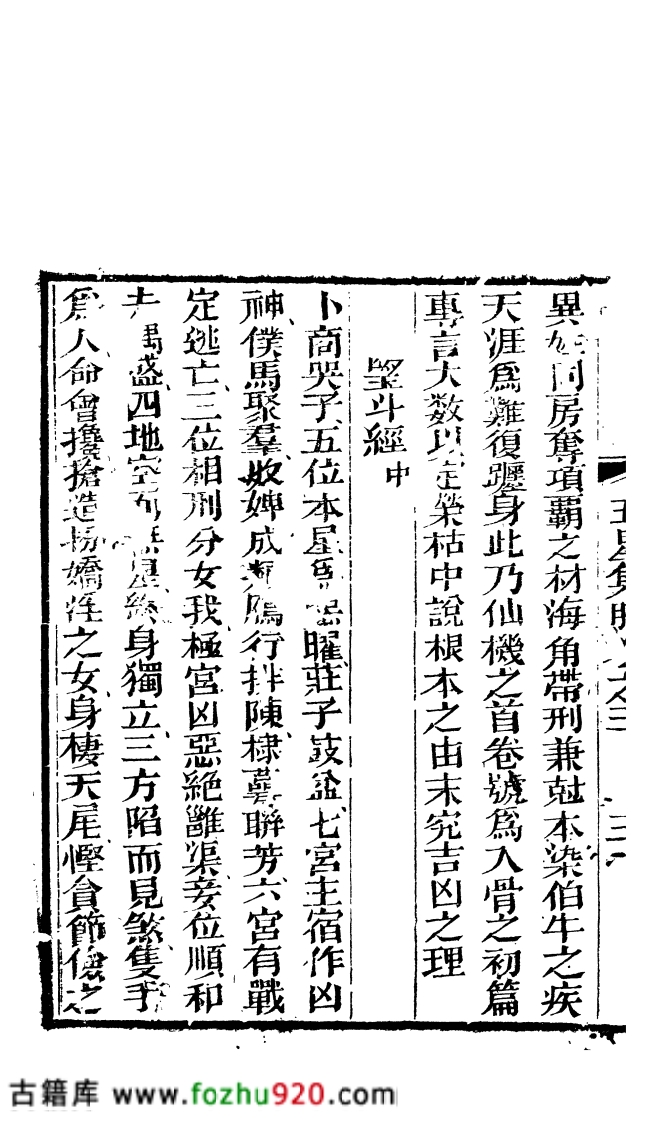 五星集腋卷之三 三
異姓同房奪項霸之材海角帶刑兼尅本染伯牛之疾
天涯爲難復躔身此乃仙機之首卷號爲入骨之初篇
專言大数以定榮枯中說根本之由末究吉凶之理
望斗經中
卜商哭子五位本星 曜莊子鼓盆七宮主宿作凶
神僕馬聚羣敗婢成 鴈行排陳棣萼聯芳六宮有戰
定逃亡三位相刑分女我極宮凶惡絶雝渠妾位順和
盛四地空而無星終身獨立三方陷而見煞隻手
爲人命會攙搶造 嬌淫之女身棲天尾慳貪節儉之
古籍库 www.fozhu920.com